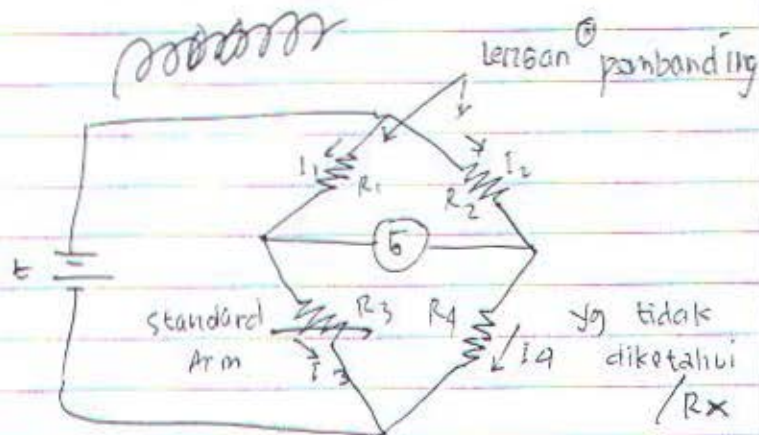 lengan² pembanding
I₁ R₁ R₂ I₂
G
E
R₃ R₄
Standard Arm
I₃ I₄
yg tidak diketahui
/ Rx